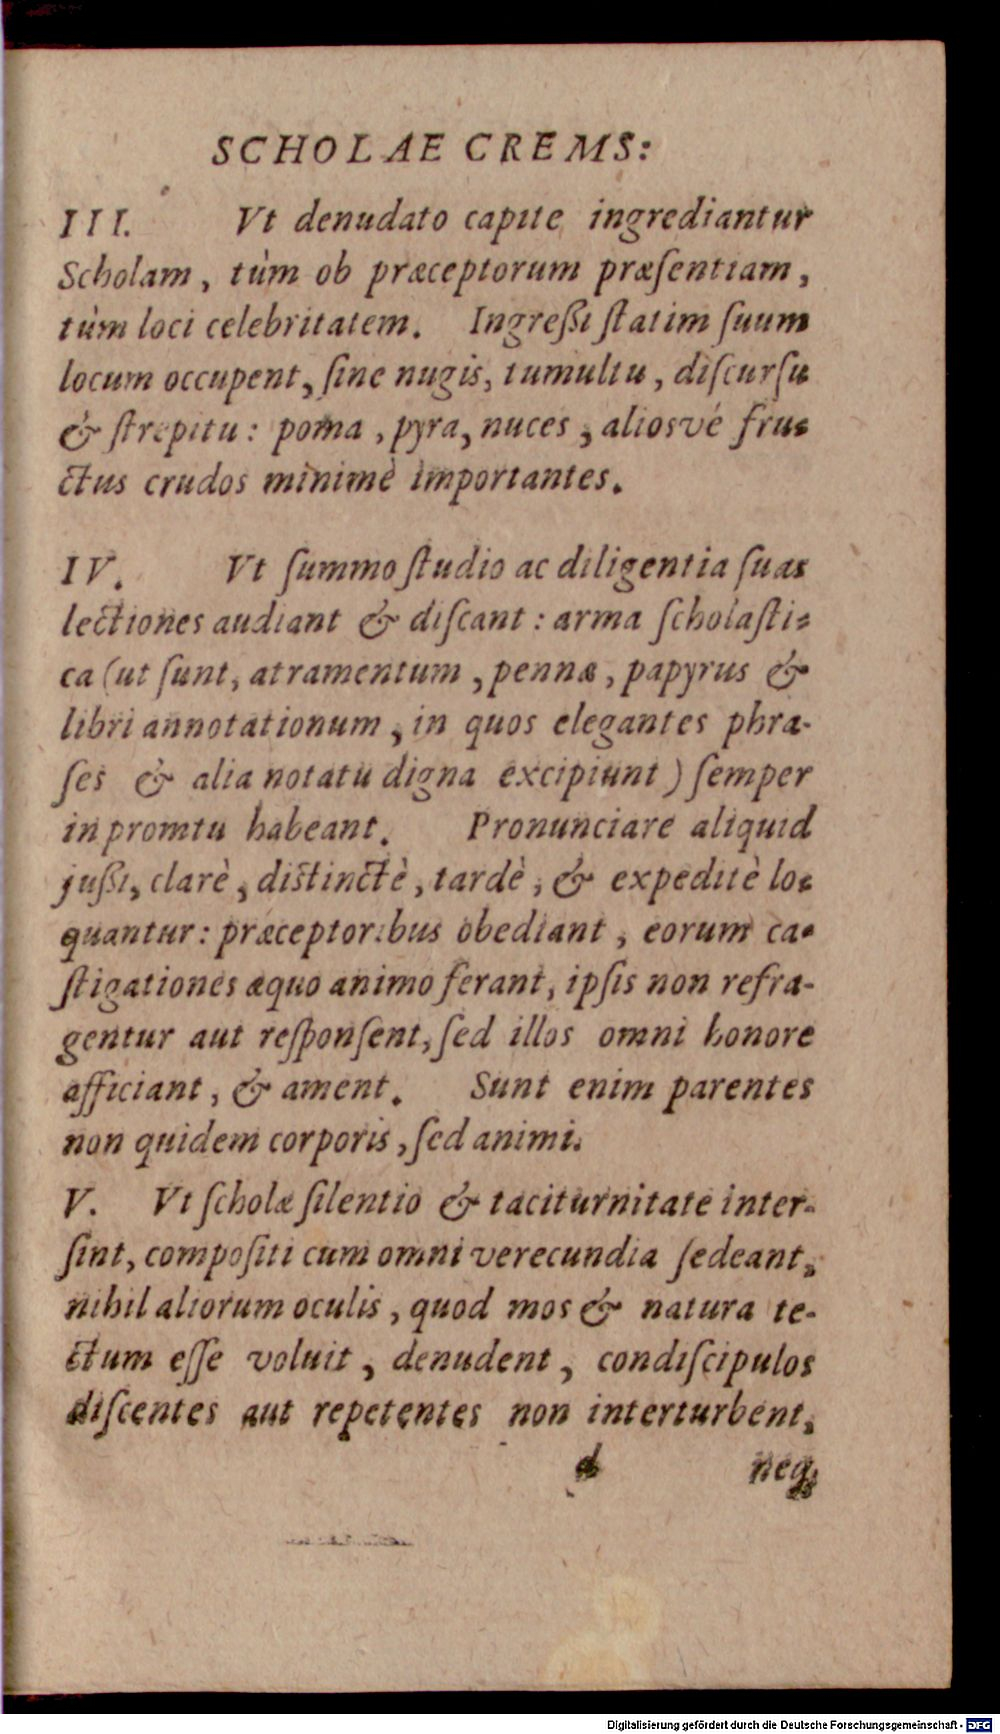 SCHOLAE CREMS:
III. Vt denudato capite ingrediantur
Scholam, tùm ob præceptorum præſentiam,
tùm loci celebritatem. Ingreßi ſtatim ſuum
locum occupent, ſine nugis, tumultu, diſcurſu
& ſtrepitu: poma, pyra, nuces, aliosvé fru-
ctus crudos minimè importantes.
IV. Vt ſummo ſtudio ac diligentia ſuas
lectiones audiant & diſcant: arma ſcholaſti-
ca (ut ſunt, atramentum, pennæ, papyrus &
libri annotationum, in quos elegantes phra-
ſes & alia notatu digna excipiunt) ſemper
in promtu habeant. Pronunciare aliquid
jußi, clarè, distinctè, tardè, & expeditè lo-
quantur: præceptoribus obediant, eorum ca-
ſtigationes æquo animo ferant, ipſis non refra-
gentur aut reſponſent, ſed illos omni honore
afficiant, & ament. Sunt enim parentes
non quidem corporis, ſed animi.
V. Vt ſcholæ ſilentio & taciturnitate inter-
ſint, compoſiti cum omni verecundia ſedeant,
nihil aliorum oculis, quod mos & natura te-
ctum eſſe voluit, denudent, condiſcipulos
diſcentes aut repetentes non interturbent,
d neq;
Digitalisierung gefördert durch die Deutsche Forschungsgemeinschaft - DFG